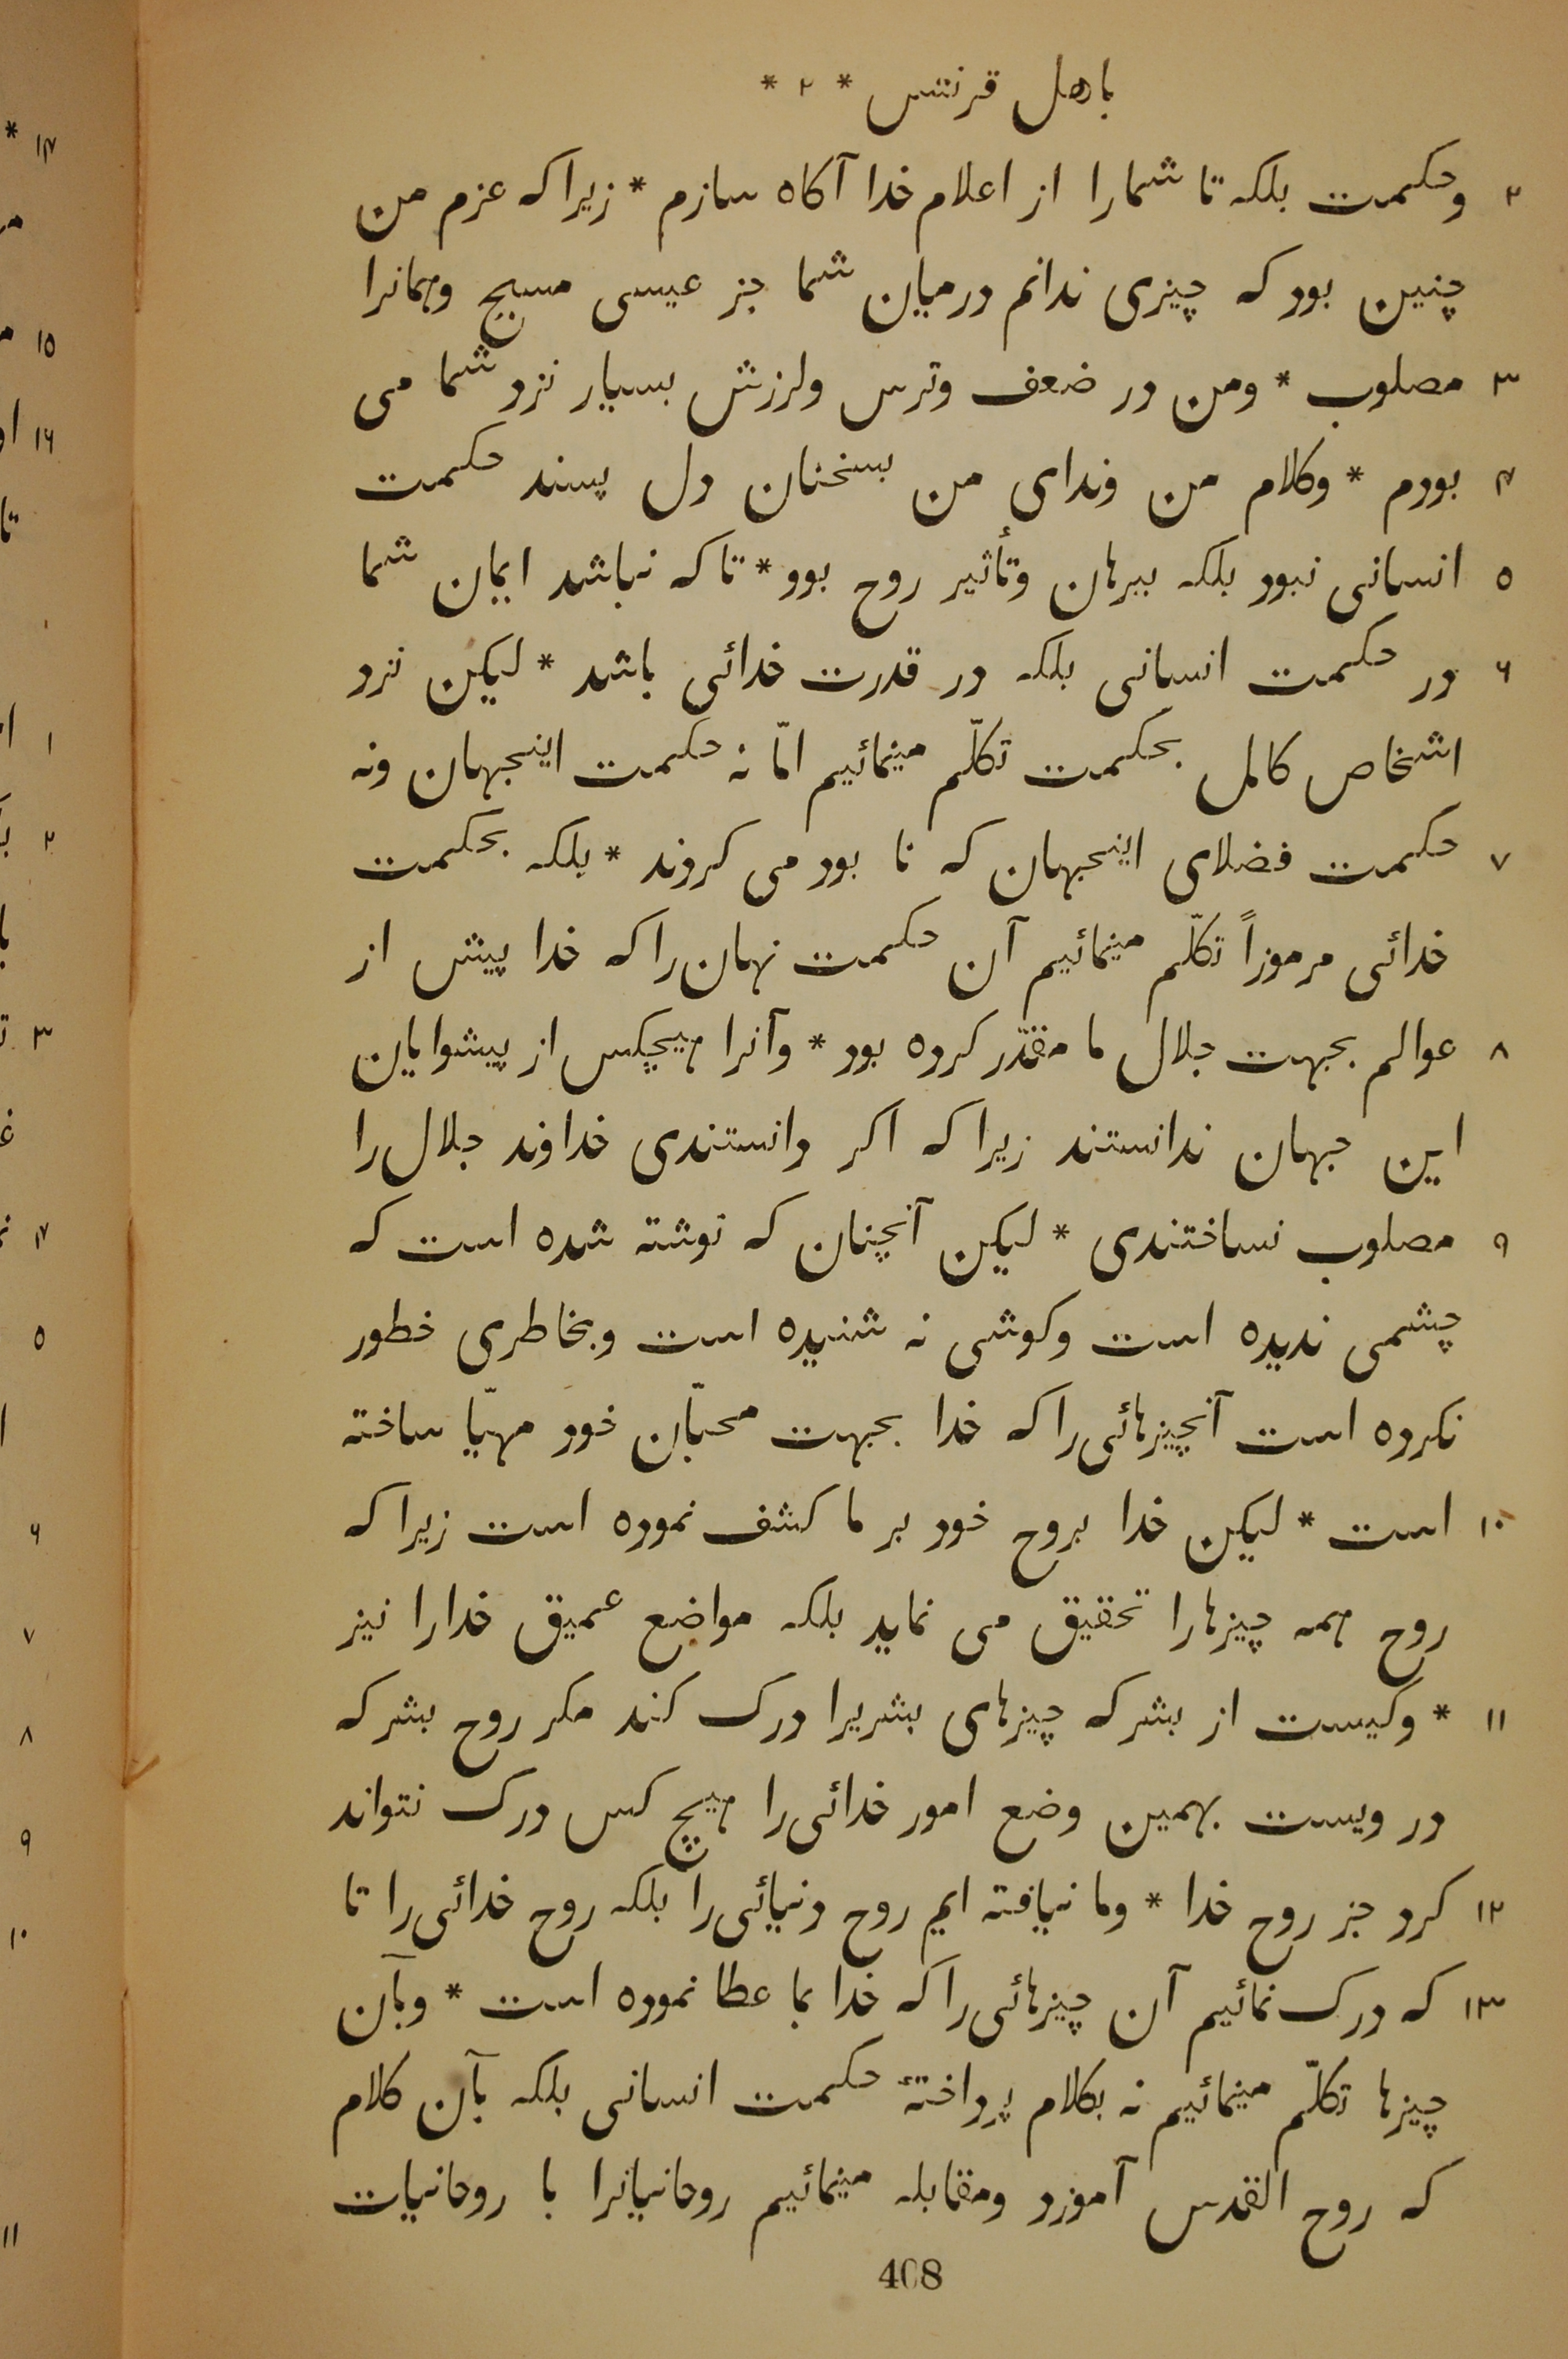 باهل قرنتس * ۲ *
۲ وحکمت بلکه تا شمارا از اعلام خدا آکاه سازم * زیرا که عزم من
چنین بود که چیزی ندانم درمیان شما جز عیسی مسیح وهمانرا
۳ مصلوب * ومن در ضعف وترس ولرزش بسیار نزد شما می
۴ بودم * وکلام من وندای من بسخنان دل پسند حکمت
۵ انسانی نبود بلکه ببرهان وتأثیر روح بود * تا که نباشد ایمان شما
۶ در حکمت انسانی بلکه در قدرت خدائی باشد * لیکن نزد
اشخاص کامل بحکمت تکلّم مینمائیم امّا نه حکمت اینجهان ونه
۷ حکمت فضلای اینجهان که نا بود می کردند * بلکه بحکمت
خدائی مرموزاً تکلّم مینمائیم آن حکمت نهان را که خدا پیش از
۸ عوالم بجهت جلال ما مقدّر کرده بود * وآنرا هیچکس از پیشوایان
این جهان ندانستند زیرا که اکر دانستندی خداوند جلال را
۹ مصلوب نساختندی * لیکن آنچنان که نوشته شده است که
چشمی ندیده است وکوشی نه شنیده است وبخاطری خطور
نکرده است آنچیزهائی را که خدا بجهت محبّان خود مهیّا ساخته
۱۰ است * لیکن خدا بروح خود بر ما کشف نموده است زیرا که
روح همه چیزها را تحقیق می نماید بلکه مواضع عمیق خدا را نیز
۱۱ * وکیست از بشر که چیزهای بشریرا درک کند مکر روح بشر که
در ویست بهمین وضع امور خدائی را هیچ کس درک نتواند
۱۲ کرد جز روح خدا * وما نیافته ایم روح دنیائی را بلکه روح خدائی را تا
۱۳ که درک نمائیم آن چیزهائی را که خدا بما عطا نموده است * وبآن
چیزها تکلّم مینمائیم نه بکلام پرداختهٔ حکمت انسانی بلکه بآن کلام
که روح القدس آموزد ومقابله مینمائیم روحانیانرا با روحانیات
408
۱۴ *
۱۵
۱۶
۱
۲
۳
۴
۵
۶
۷
۸
۹
۱۰
۱۱